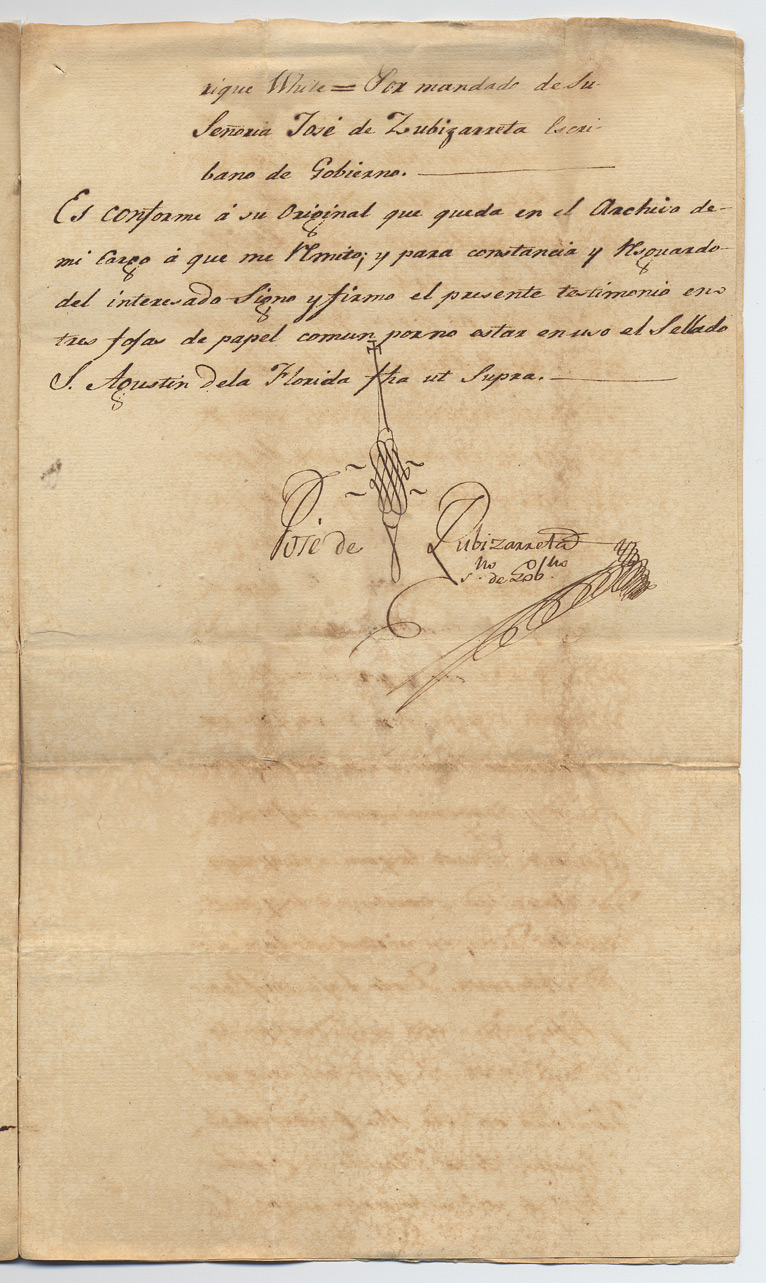 rique White = Por mandado de Su
Señoria José de Zubizarreta Escri-
bano de Gobierno.
Es conforme á su Original que queda en el Archivo de
mi Cargo á que me Rmito; y para constancia y Rsguardo
del interesado Signo y firmo el presente testimonio en
tres fojas de papel comun por no estar en uso el Sellado
S. Agustin dela Florida fha ut Supra.
José de Zubizarreta
no de Gob.no